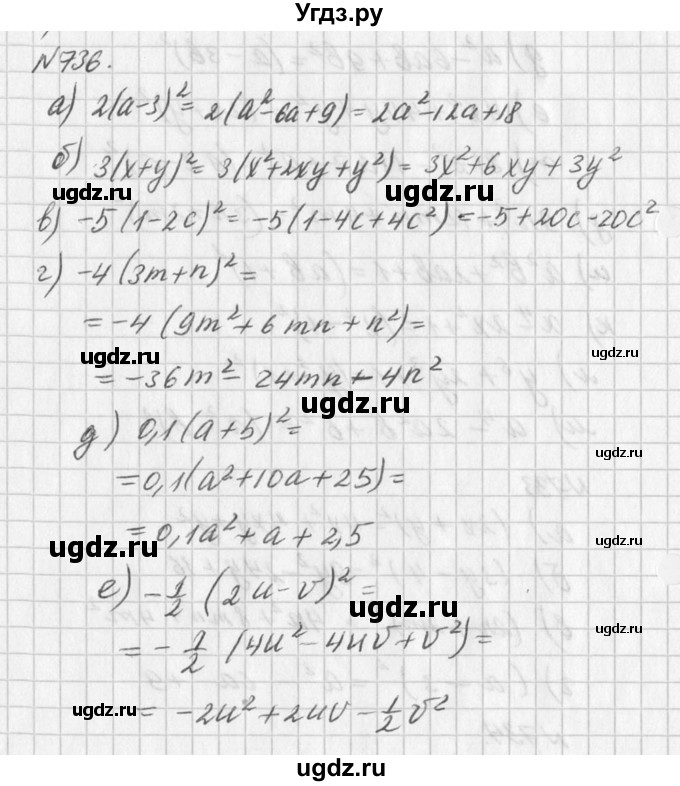 Угдз.ру
№736.
а) 2(a-3)² = 2(a²-6a+9) = 2a²-12a+18
б) 3(x+y)² = 3(x²+2xy+y²) = 3x²+6xy+3y²
в) -5(1-2c)² = -5(1-4c+4c²) = -5+20c-20c²
г) -4(3m+n)² =
= -4(9m²+6mn+n²) =
ugdz.ru ugdz.ru
= -36m² - 24mn - 4n²
ugdz.ru
д) 0,1(a+5)² =
ugdz.ru ugdz.ru
= 0,1(a²+10a+25) =
= 0,1a² + a + 2,5
ugdz.ru
е) -1/2 (2u-v)² =
ugdz.ru
= -1/2 (4u²-4uv+v²) =
ugdz.ru ugdz.ru
= -2u²+2uv-1/2v²
ugdz.ru